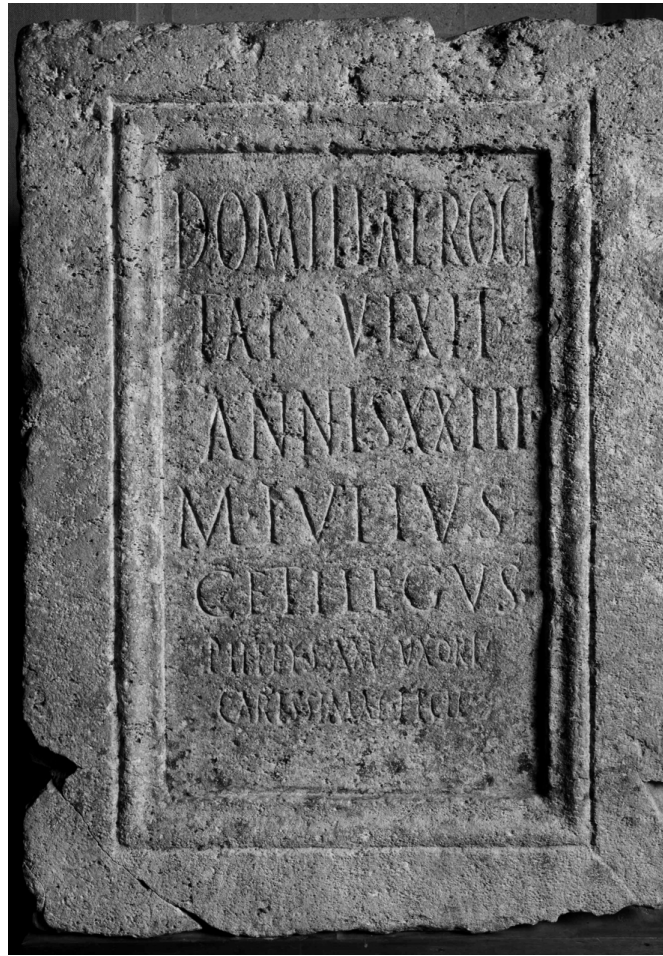 DOMITIAE ROGA
TAE VIXIT
ANNIS XXIII
M · IVLIVS
CETHEGVS
VXORI
CARISSIMAE FECIT